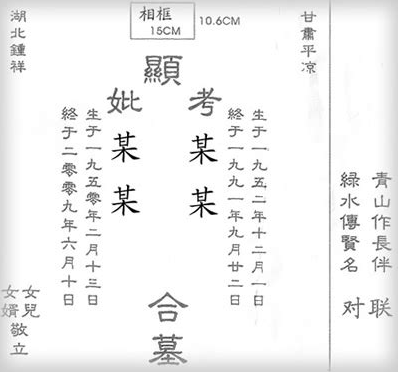 青山作長伴
緑水傳賢名
对联
甘肅平凉
相框
15CM
10.6CM
顯
考某某
生于一九五二年十二月一日
終于一九九一年九月廿二日
妣某某
生于一九五零年二月十三日
終于二零零九年六月十日
合墓
湖北鍾祥
女兒
女婿
敬立